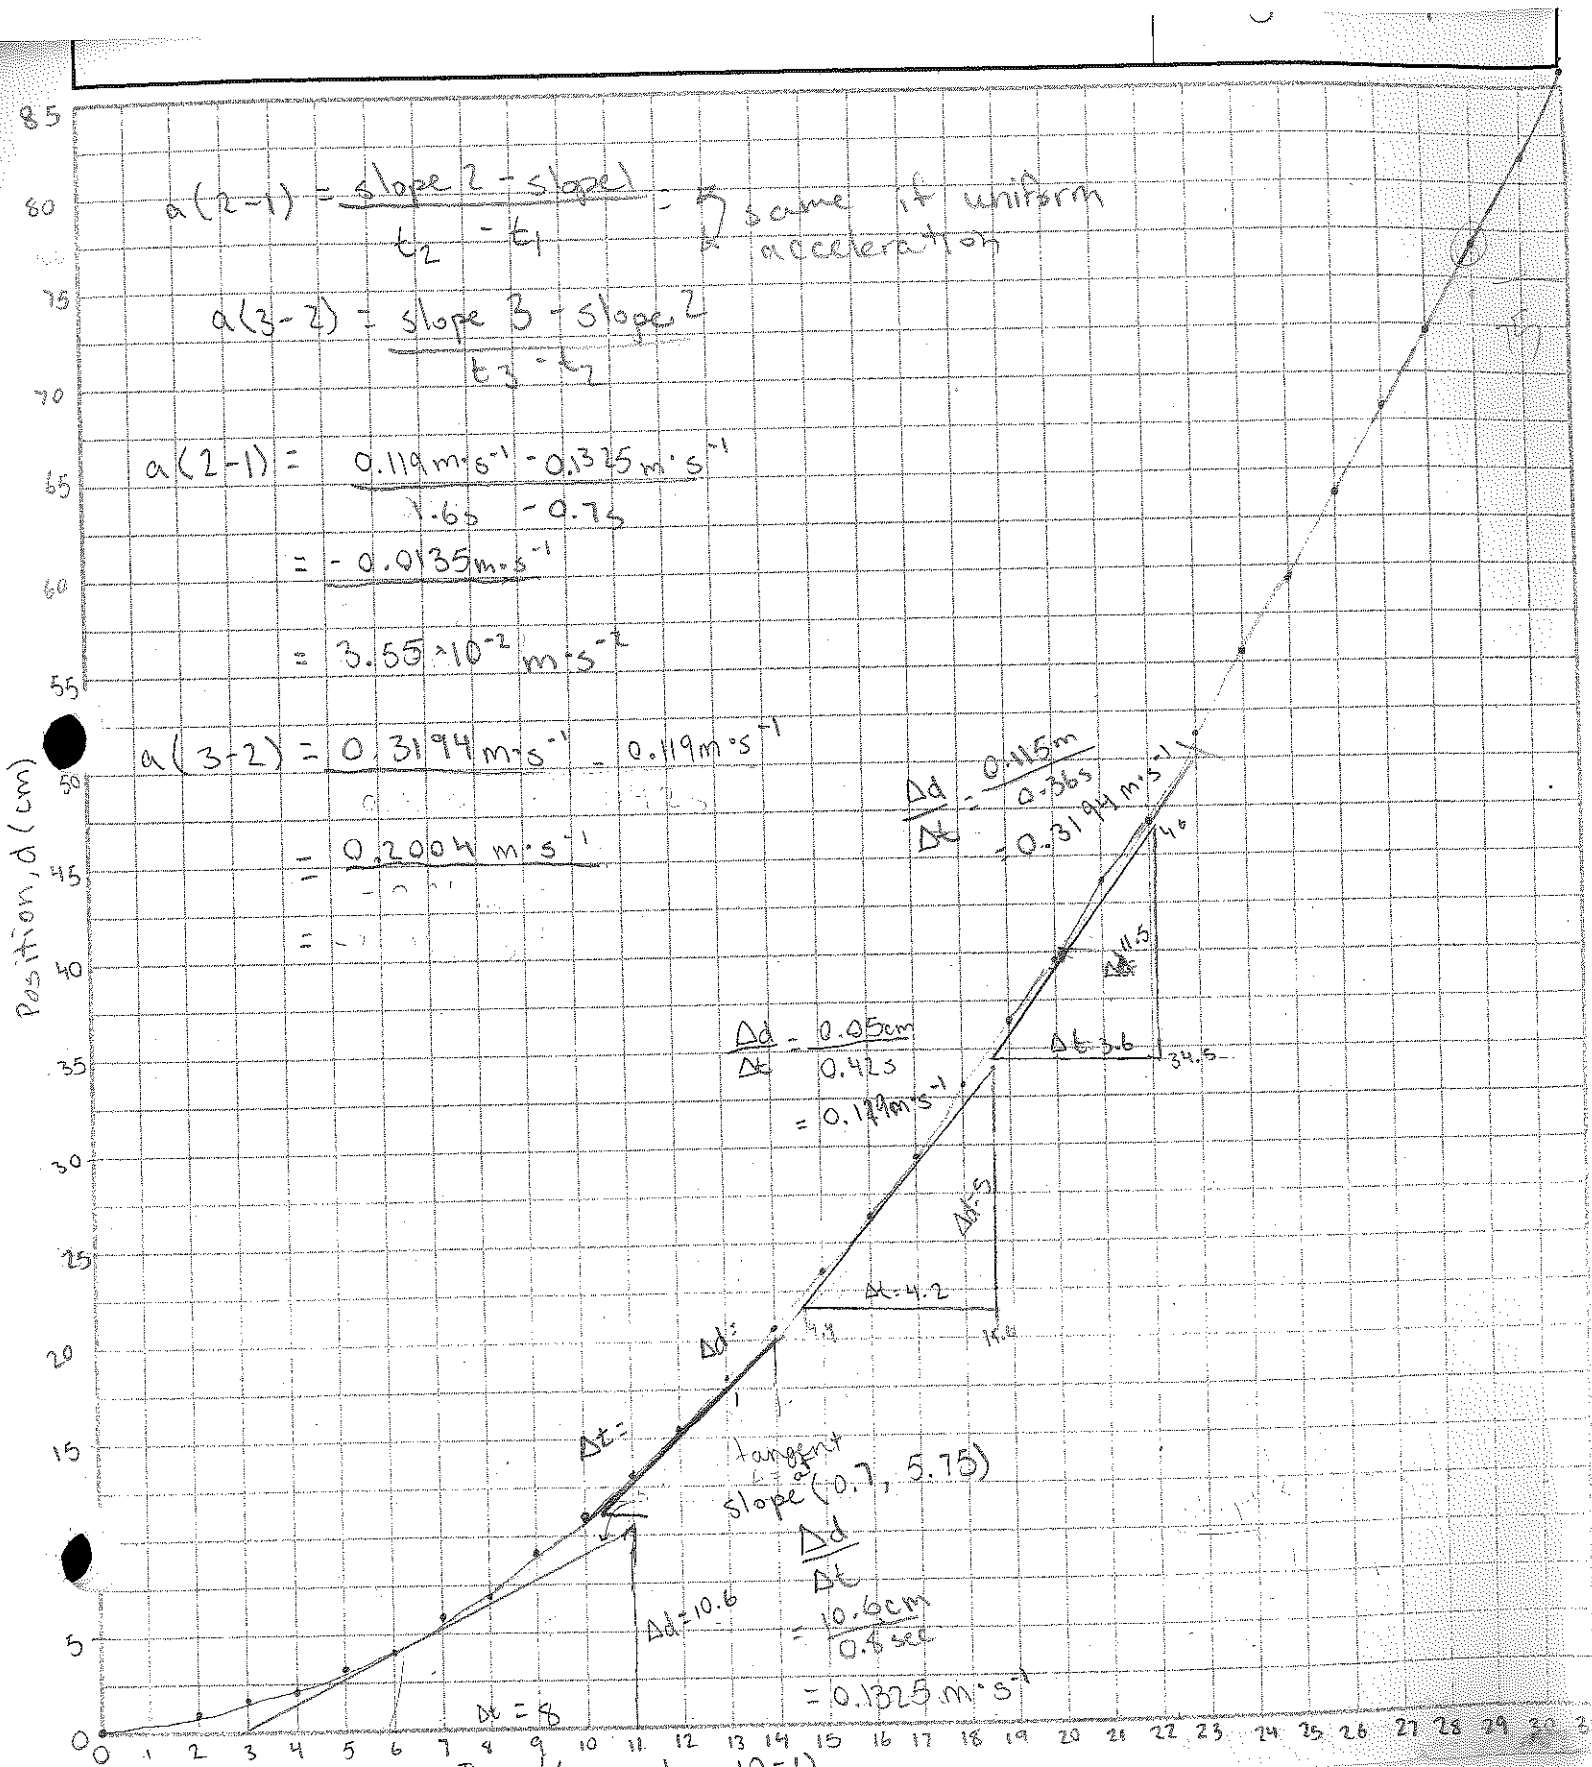 85
80
75
70
65
60
55
50
45
40
35
30
25
20
15
5
0
Position, d (cm)
a(2-1) = slope 2 - slope 1 =
t2 - t1
same if uniform
acceleration
a(3-2) = slope 3 - slope 2
t3 - t2
a(2-1) = 0.119 m·s⁻¹ - 0.1325 m·s⁻¹
1.6s - 0.7s
= - 0.0135 m·s⁻¹
= 3.55·10⁻² m·s⁻²
a(3-2) = 0.3194 m·s⁻¹ - 0.119 m·s⁻¹
= 0.2004 m·s⁻¹
=
Δd = 0.115m
Δt 0.36s
= 0.3194 m·s⁻¹
46
11.5
Δt 3.6
34.5
Δd = 0.05cm
Δt 0.42s
= 0.119 m·s⁻¹
Δd=5
Δt=4.2
Δd=
Δt=
tangent
slope (0.7, 5.75)
Δd
Δt
= 10.6cm
0.8 sec
= 0.1325 m·s⁻¹
Δd=10.6
Δt = 8
0 1 2 3 4 5 6 7 8 9 10 11 12 13 14 15 16 17 18 19 20 21 22 23 24 25 26 27 28 29 30